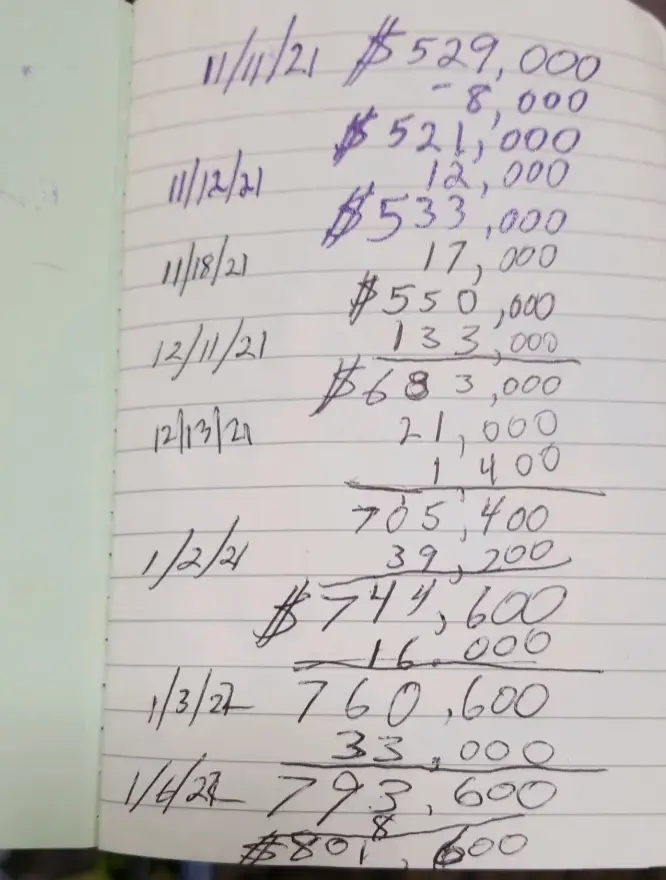 11/11/21 $529,000
-8,000
$521,000
11/12/21 12,000
$533,000
11/18/21 17,000
$550,000
12/11/21 133,000
$683,000
12/13/21 21,000
1,400
705,400
1/2/21 39,200
$744,600
16.000
1/3/22 760,600
33.000
1/6/22 793,600
8
$801,600